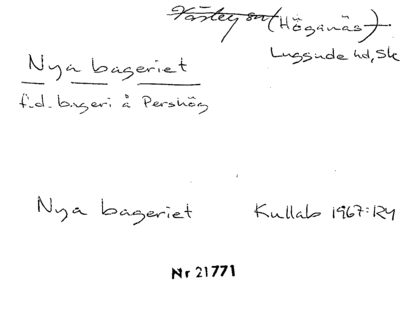 (Höganäs)
Luggude hd, Sk
Nya bageriet
f.d. bageri å Pershög
Nya bageriet Kullab 1967:124
Nr 21771